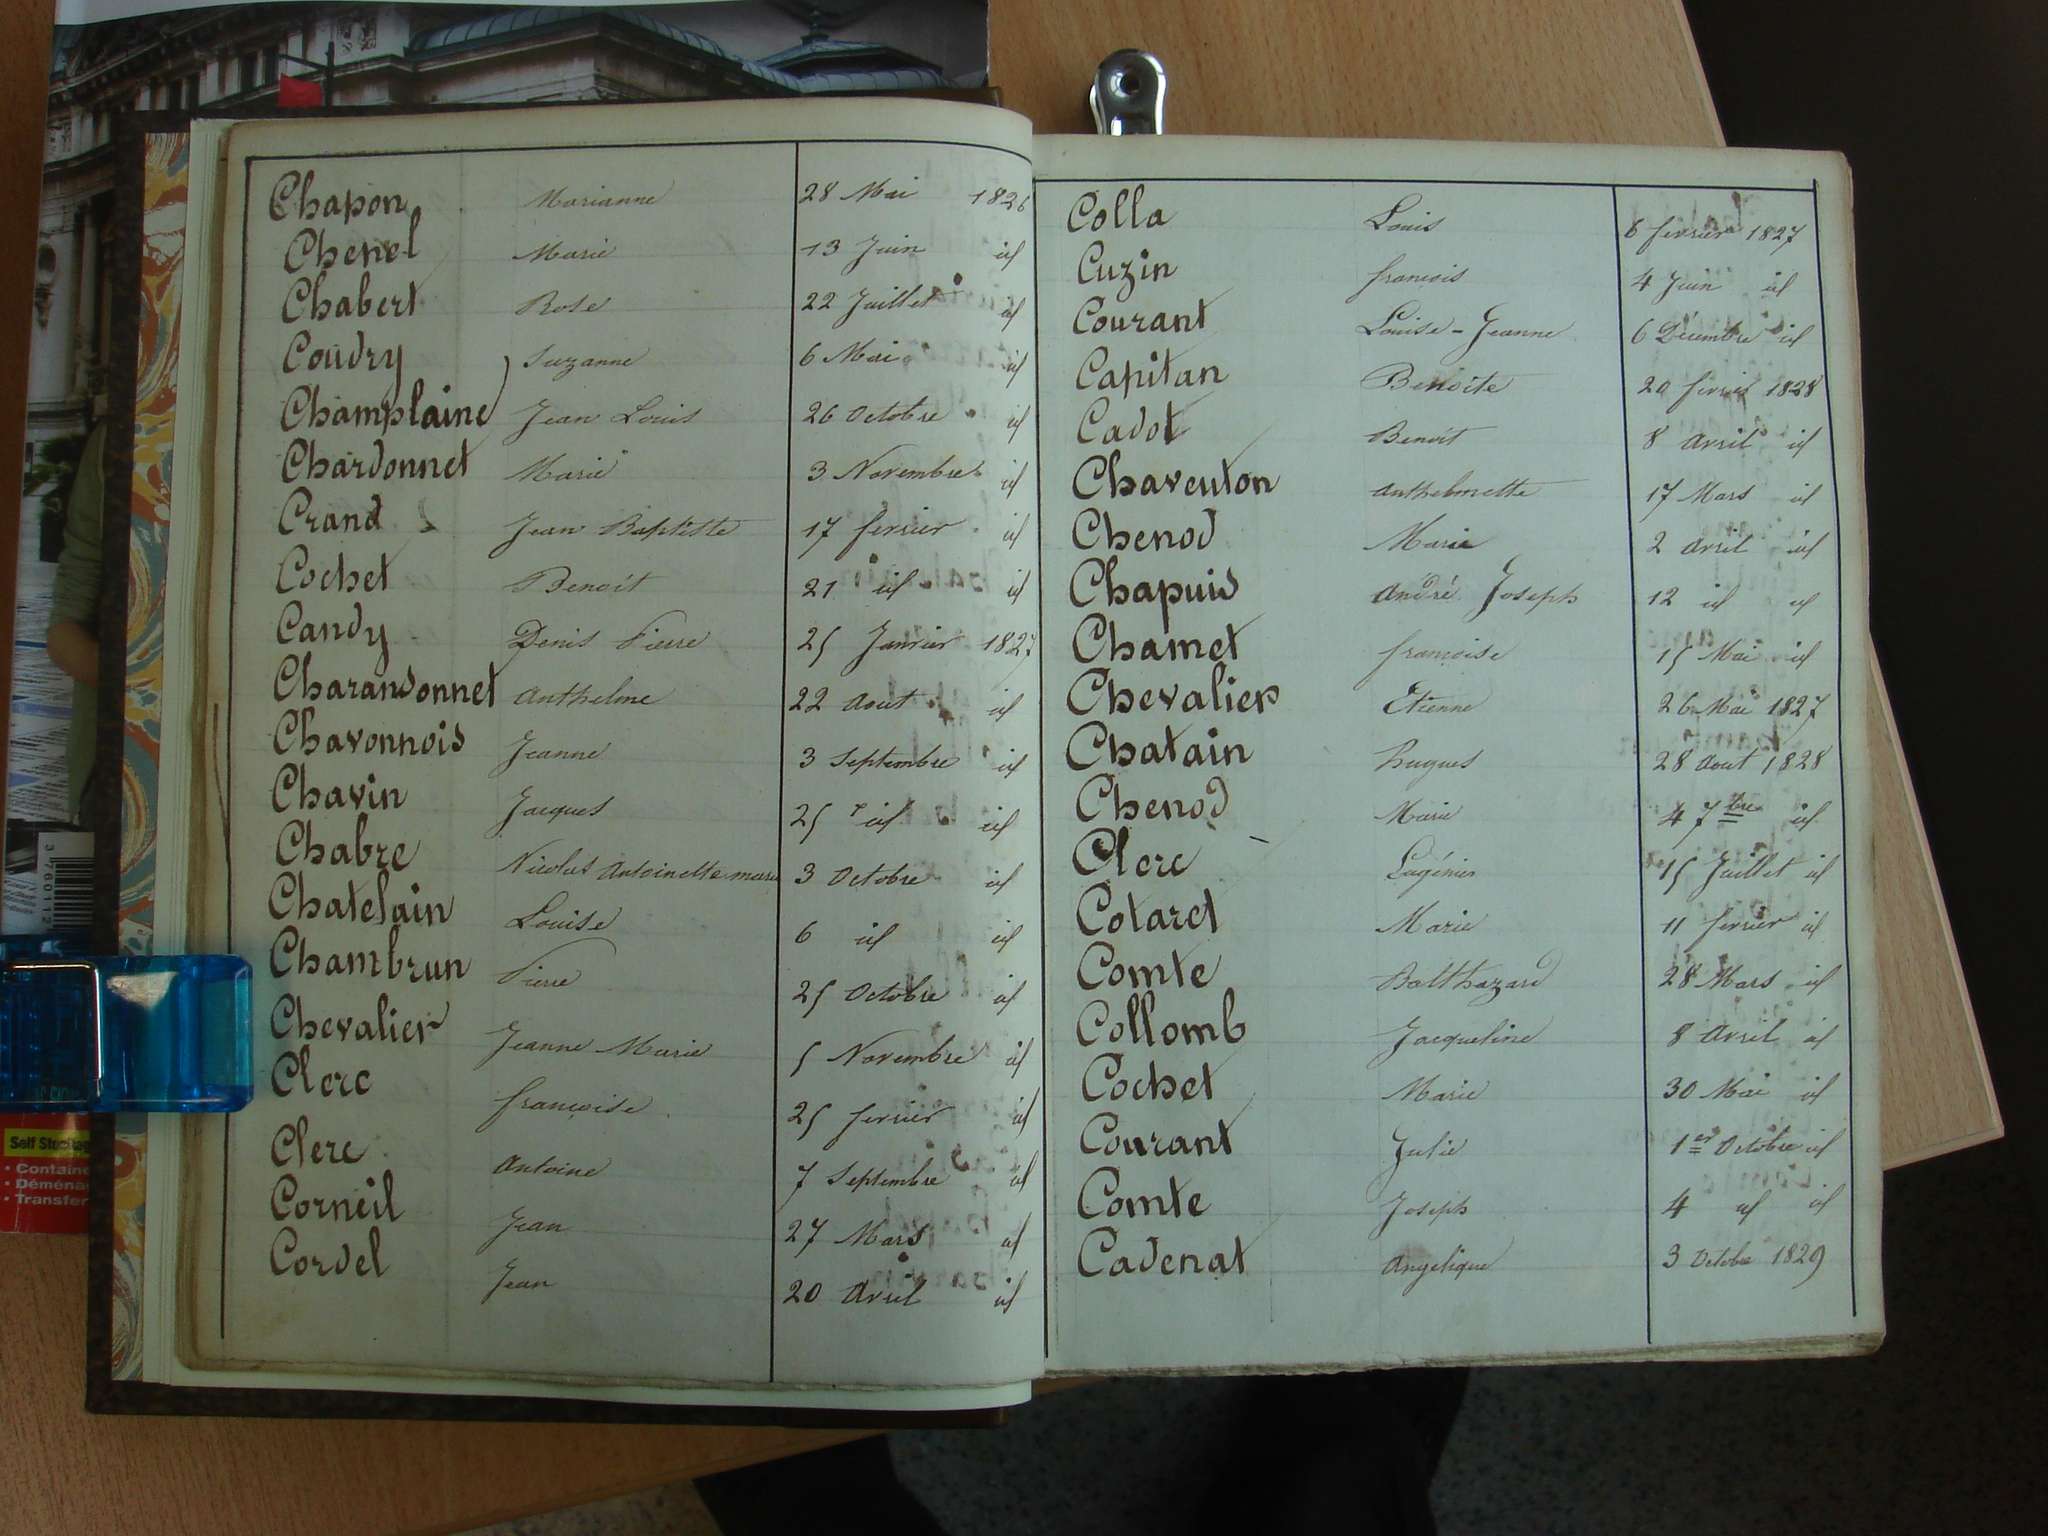 Chapon Marianne 28 Mai 1826
Chenel Marie 13 Juin id
Chabert Rose 22 Juillet id
Coudry Suzanne 6 Mai id
Champlaine Jean Louis 26 Octobre id
Chardonnet Marie 3 Novembre id
Crand Jean Baptiste 17 fevrier id
Cochet Benoit 21 id id
Candy Denis Pierre 25 Janvier 1827
Charansonnet Anthelme 22 Aout id
Chavonnois Jeanne 3 Septembre id
Chavin Jacques 25 id id
Chabre Nicolas Antoinette marie 3 Octobre id
Chatelain Louise 6 id id
Chambrun Pierre 25 Octobre id
Chevalier Jeanne Marie 5 Novembre id
Clerc françoise 25 fevrier id
Clerc Antoine 7 Septembre id
Corneil Jean 27 Mars id
Cordel Jean 20 Avril id
Colla Louis 6 fevrier 1827
Cuzin francois 4 Juin id
Courant Louise-Jeanne 6 Décembre id
Capitan Benoite 20 fevrier 1828
Cadot Benoit 8 Avril id
Chaveuton Anthelmette 17 Mars id
Chenod Marie 2 Avril id
Chapuis André Joseph 12 id id
Chamet françoise 15 Mai id
Chevalier Etienne 26 Mai 1827
Chatain hugues 28 Aout 1828
Chenod Marie 4 7bre id
Clerc Eugénie 15 Juillet id
Cotaret Marie 11 fevrier id
Comte Balthazard 28 Mars id
Collomb Jacqueline 8 Avril id
Cochet Marie 30 Mai id
Courant Julie 1er Octobre id
Comte Joseph 4 id id
Cadenat Angelique 3 Octobre 1829
3 760112
Self Stockage
• Containe
• Déména
• Transfer